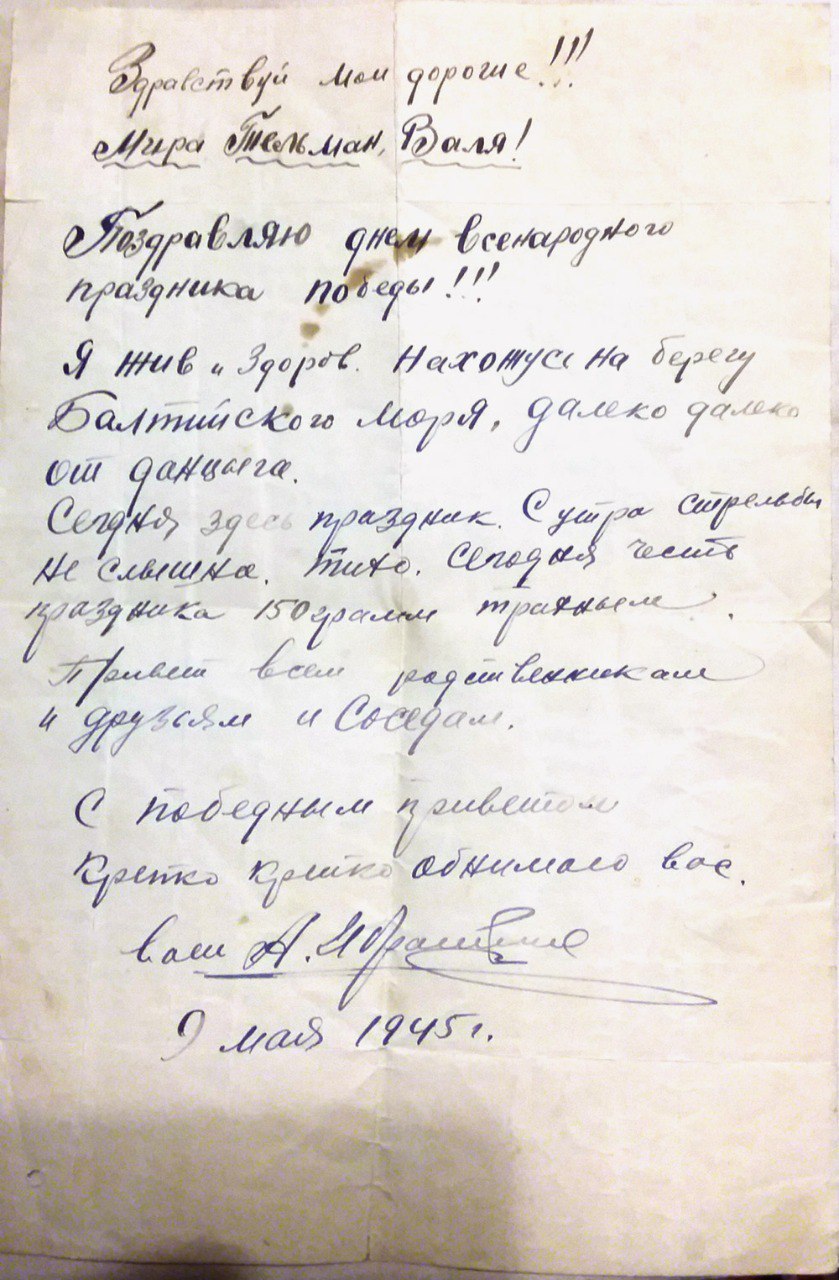 Здравствуй мои дорогие!!!
Мира Тельман, Валя!
Поздравляю днем всенародного
праздника победы!!!
Я жив и здоров. Нахожусь на берегу
Балтийского моря, далеко далеко
от данцыга.
Сегдня здесь праздник. С утра стрельбы
не слышна. Тихо. Сегодня честь
праздника 150 грамм
Привет всем родственникам
и друзьям и соседам.
С победным приветом
Крепко крепко обнимаю вас.
ваш А.
9 мая 1945 г.